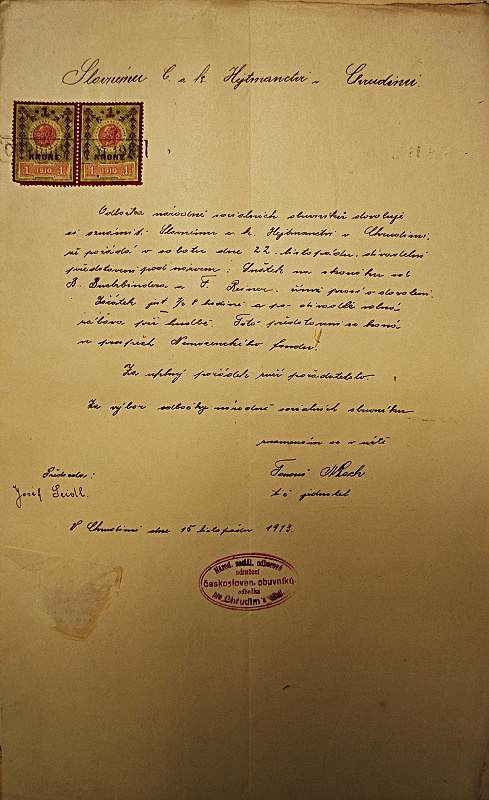 Slavnému C. a k. Hejtmanství v Chrudimi.
1 1
KRONE KRONE
1 1910 1 1 1910 1
Odbočka národně sociálních obuvníků dovoluje
si oznámiti Slavnému c. k. Hejtmanství v Chrudimi,
že pořádá v sobotu dne 22. listopadu, divadelní
představení pod názvem: Svátek na
B. Buchbindra a F. Reiner. prosí o dovolení
Začátek jest ½ 8 hodině a po divadle volná
zábava při hudbě. Toto představení se koná
ve prospěch Nemocenského fondu.
Za úplný pořádek ručí pořadatelstvo.
Za výbor odbočky národně sociálních obuvníků
znamenám se v úctě
Předseda:
Josef Seidl.
t. č. jednatel
V Chrudimi dne 15 listopadu 1913.
Národ. sociál. odborové
sdružení
českosloven. obuvníků
odbočka
pro Chrudim a okolí.